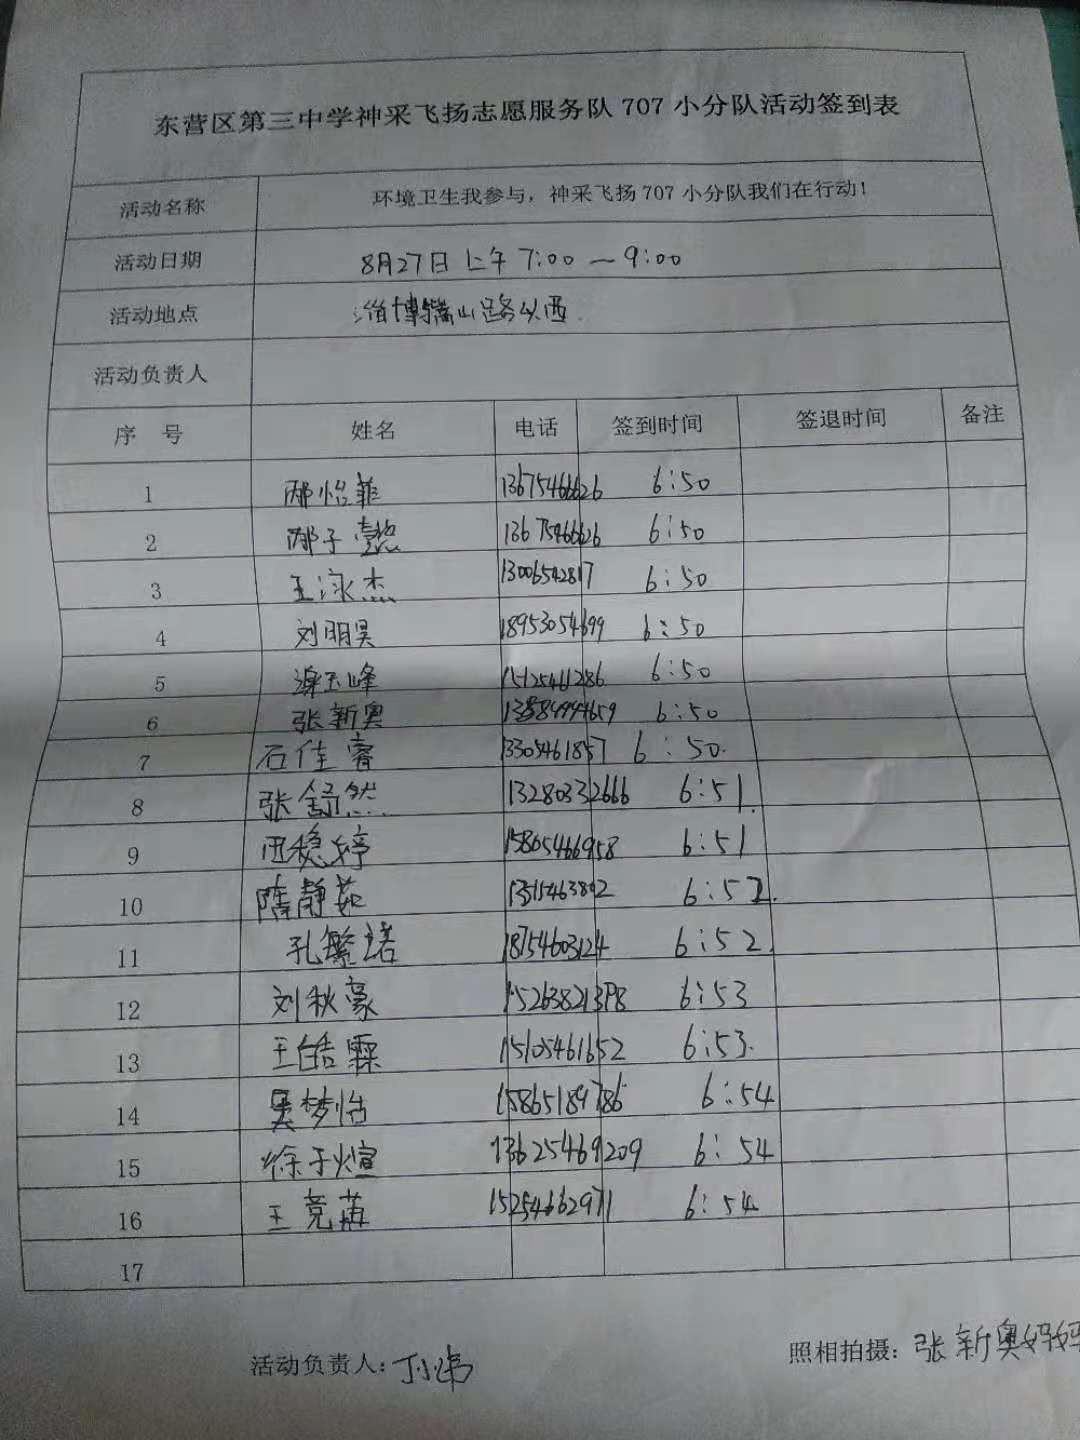 东营区第三中学神采飞扬志愿服务队 707 小分队活动签到表
活动名称 环境卫生我参与，神采飞扬 707 小分队我们在行动！
活动日期 8月27日上午 7:00 — 9:00
活动地点 淄博嵩山路以西
活动负责人
序 号 姓名 电话 签到时间 签退时间 备注
1 邴怡菲 13675466626 6:50
2 邴子懿 13675466626 6:50
3 王泳杰 13006542817 6:50
4 刘明昊 18953054699 6:50
5 玉峰 15125461286 6:50
6 张新奥 6:50
7 石佳睿 13305461857 6:50
8 张舒然 13280332666 6:51
9 田稳婷 15865466958 6:51
10 隋静茹 6:52
11 孔繁培 18754603124 6:52
12 刘秋豪 6:53
13 王皓霖 15105461652 6:53
14 吴梦怡 15865189786 6:54
15 徐子煊 13625469209 6:54
16 王竞苒 15254662971 6:54
17
活动负责人：丁小伟
照相拍摄：张新奥妈妈